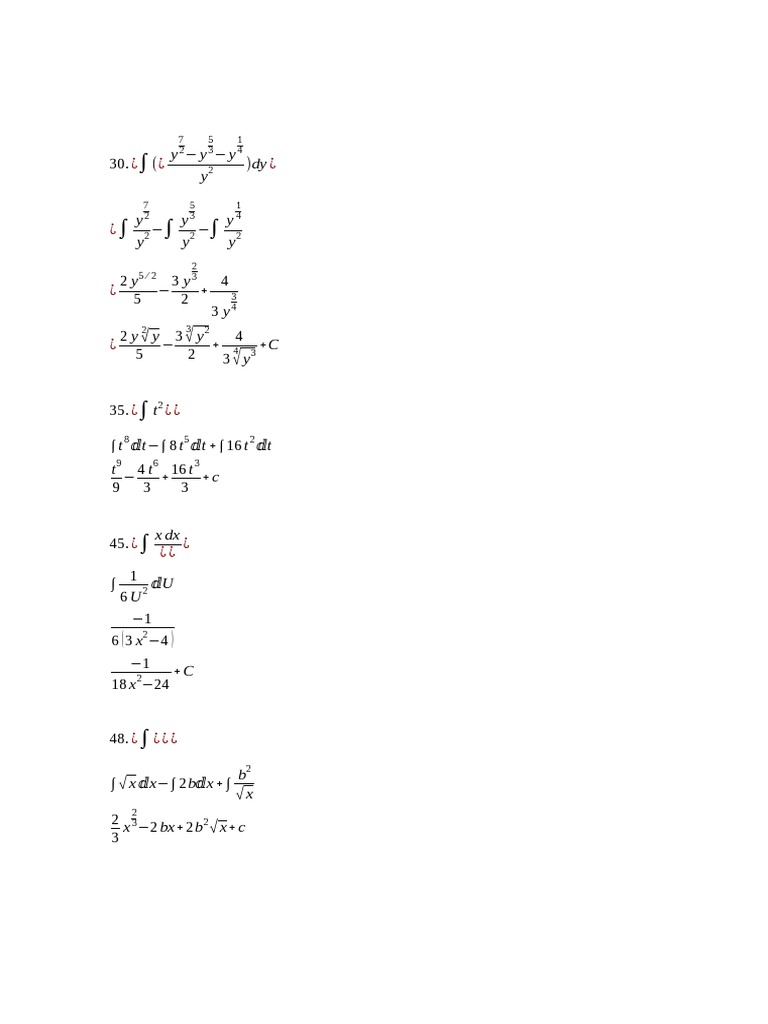 30. ¿ ∫ (¿ (y^(7/2) − y^(5/3) − y^(1/4))/y^2 ) dy ¿
¿ ∫ y^(7/2)/y^2 − ∫ y^(5/3)/y^2 − ∫ y^(1/4)/y^2
¿ (2 y^(5/2))/5 − (3 y^(2/3))/2 + 4/(3 y^(3/4))
¿ (2 y ²√y)/5 − (3 ³√(y^2))/2 + 4/(3 ⁴√(y^3)) + C
35. ¿ ∫ t^2 ¿ ¿
∫ t^8 ⅆt − ∫ 8 t^5 ⅆt + ∫ 16 t^2 ⅆt
t^9/9 − (4 t^6)/3 + (16 t^3)/3 + c
45. ¿ ∫ (x dx)/(¿ ¿) ¿
∫ 1/(6 U^2) ⅆU
−1/(6 (3 x^2 − 4))
−1/(18 x^2 − 24) + C
48. ¿ ∫ ¿ ¿ ¿
∫ √x ⅆx − ∫ 2 b ⅆx + ∫ b^2/√x
2/3 x^(2/3) − 2 bx + 2 b^2 √x + c